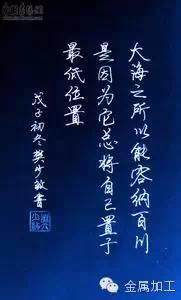 大海之所以能容纳百川
是因为它总将自己置于
最低位置
戊子初冬樊少敏書
金属加工